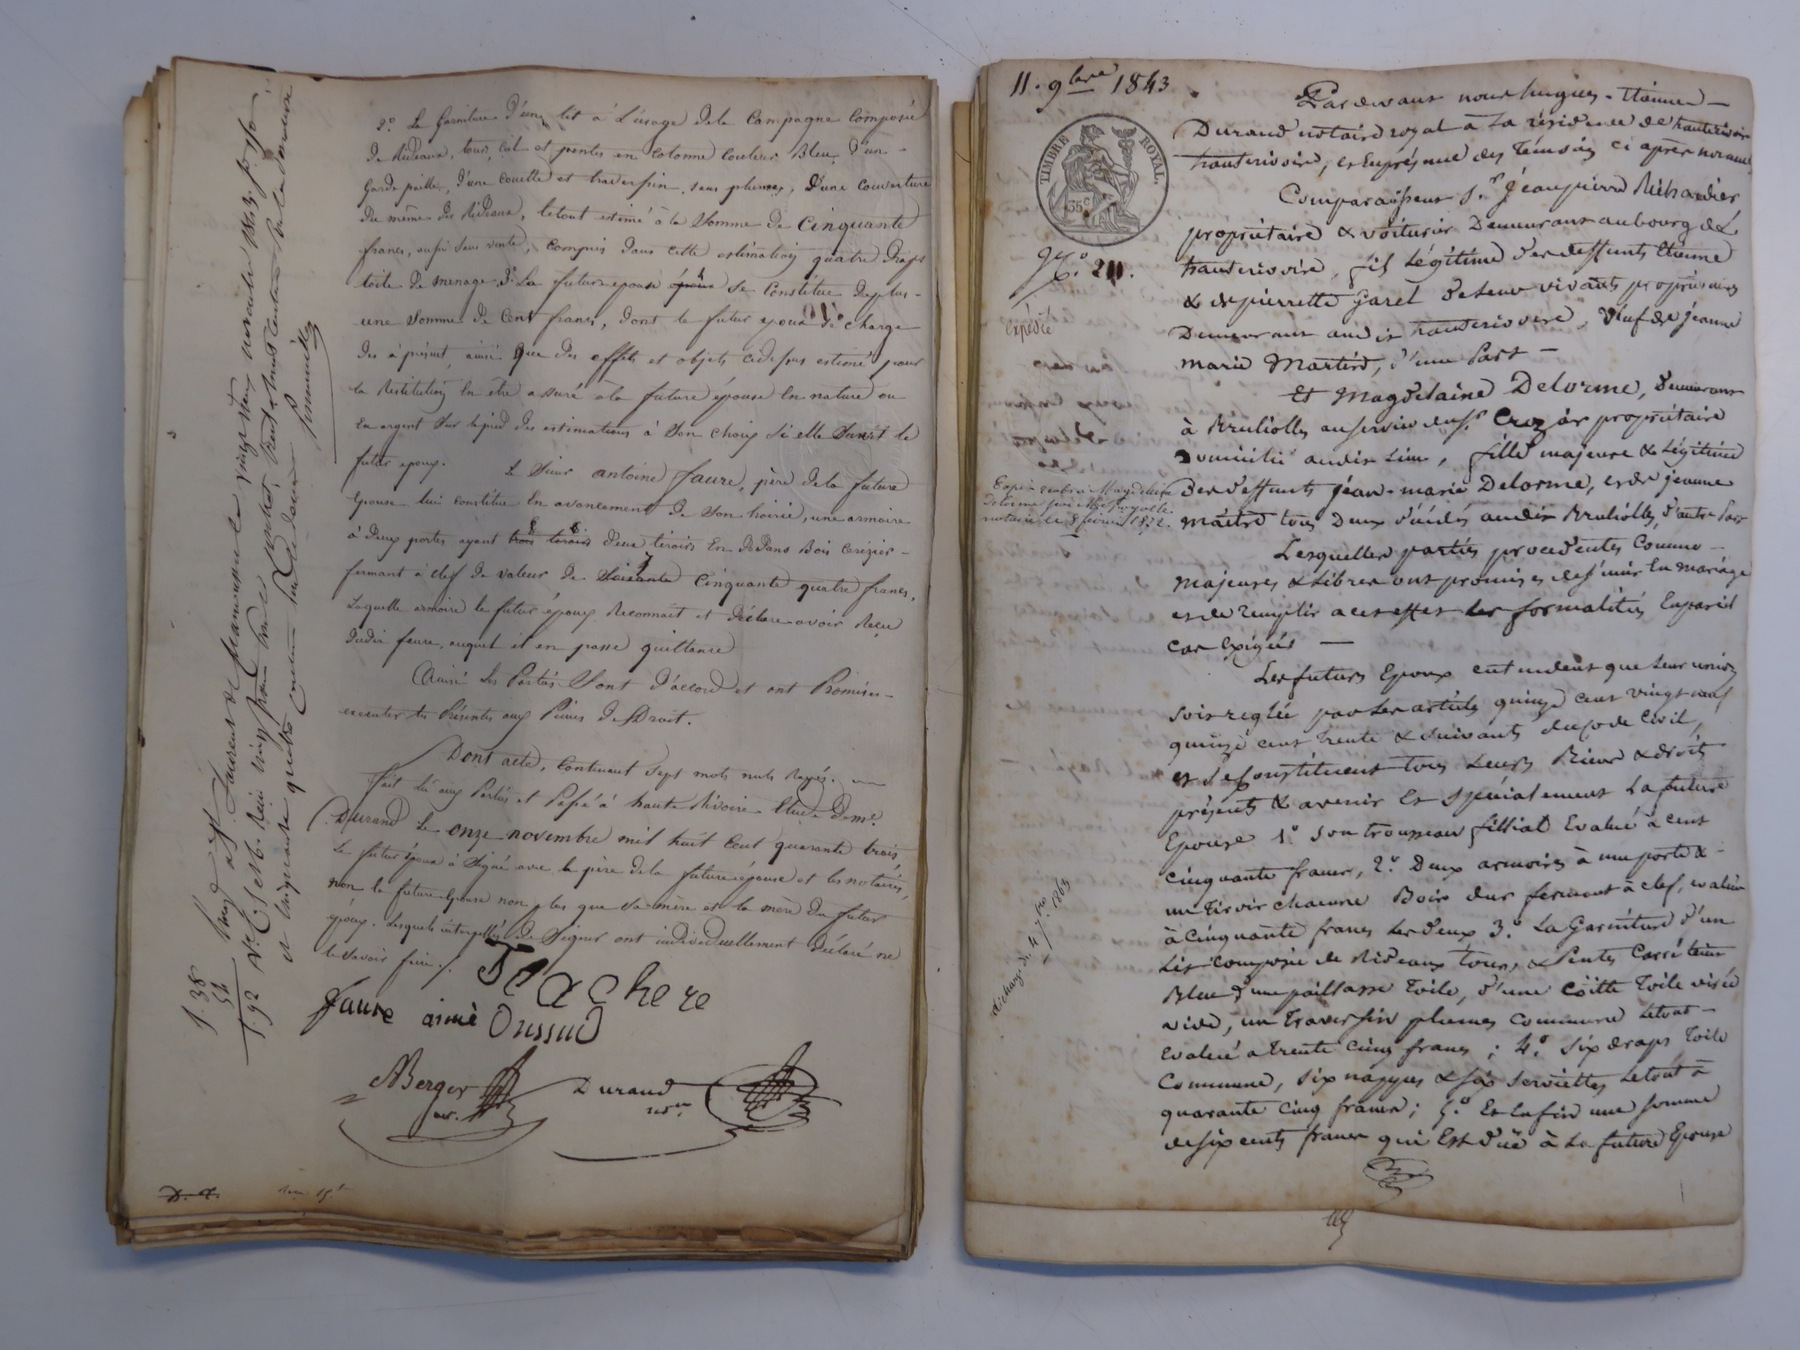 2.° La Garniture d'un lit à l'usage de la Campagne Composée
de Rideaux, tour, ciel et pentes en cotonne couleur Bleu, d'un
Garde paille, d'une couette et traversin sans plumes, d'une couverture
du même des Rideaux, letout estimé à la Somme de Cinquante
francs, aussi sans vente, compris dans cette estimation quatre draps
toile de menage. 3.° La future épouse se Constitue de plus
une Somme de Cent francs, dont le futur époux se charge
dès à présent, ainsi que des effets et objets cidessus estimé pour
la Restitution en être assuré à la future épouse En nature ou
en argent Sur le pied des estimations à Son choix Si elle Survit le
futur époux. Le Sieur antoine faure, père de la future
épouse lui constitue En avancement de Son hoirie, une armoire
à deux portes ayant trois tiroirs deux tiroirs En dedans Bois cerizier
fermant à clef de valeur de Soixante Cinquante quatre francs,
Laquelle armoire le futur époux Reconnait et déclare avoir Reçu
dudit faure, auquel il en passe quittance
Ainsi Les Parties Sont d'accord et ont Promis
executer les Présentes aux Peines de Droit.
Dont acte, Contenant Sept mots nuls Rayés.
fait lû aux Parties et Passé à haute Rivoire Etude de me.
Durand Le onze novembre mil huit Cent quarante trois,
Le futur époux à Signé avec le père de la future épouse et les notaires,
non la future épouse non plus que Sa mère et la mère du futur
époux. Lesquels interpellés de Signer ont individuellement déclaré ne
le Savoir faire./.
faure aimé
Berger
not.
Durand
f. 38
54
f. 92
11. 9bre 1843
TIMBRE ROYAL.
35c
N.° 211.
Expédié
Pardevant nous hugues-Etienne
Durand notaire royal à La résidence de hauterivoire
hauterivoire, et En présence des Témoins ci après nommés
Comparaissent S.r Jean pierre Richardier
propriétaire & voiturier Demeurant au bourg de
hauterivoire, fils Légitime des deffunts Etienne
& de pierrette Garel de leur vivants propriétaires
Demeurant audit hauterivoire, veuf de jeanne
marie Martin, d'une Part
Et Magdelaine Delorme, Demeurant
à Brulliolles au service du S.r Crozier propriétaire
Domicilié audit Lieu, fille majeure & Légitime
Des deffunts jean-marie Delorme, et de jeanne
maître tous Deux décédés audit Brulliolles, d'autre Part
Lesquelles parties procedentes Comme
majeures & Libres ont promis de s'unir En mariage
et de remplir à cet effet les formalités En pareil
cas Exigées
Les futurs Epoux entendent que Leur union
soit reglée par Les articles quinze cent vingt neuf
quinze cent trente & suivants du Code Civil,
et se Constituent tous Leurs Biens & droits
présents & avenir Et spécialement La future
Epouse 1.° son trousseau fillial Evalué à cent
cinquante francs, 2.° Deux armoires à une porte &
un Tiroir chacune Bois dur fermant à clef, evaluées
à Cinquante francs Les deux 3.° La Garniture d'un
Lit Composée de Rideaux tour, & Pentes Carré teint
Bleu d'une paillasse Toile, d'une Coitte Toile
vide, un traversin plumes commune Letout
Evalué à trente Cinq francs; 4.° Six draps Toile
Commune, six nappes & six serviettes Letout à
quarante Cinq francs; 5.° Et Enfin une somme
de six cents francs qui Est dûe à La future Epouse